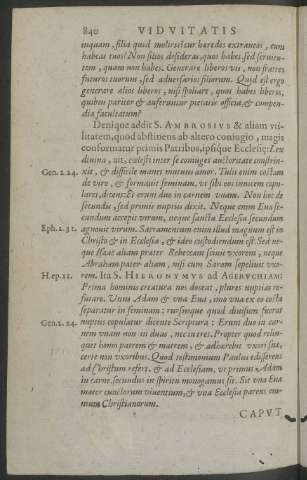 840 VIDVITATIS
inquam, filia quid moliris? cur hæredes extraneos, cum
habeas tuos? Non filios desideras, quos habes, sed seruitu-
tem, quam non habes. Generare liberos vis, non fratres
futuros tuorum, sed aduersarios filiorum. Quid est ergo
generare alios liberos, nisi spoliare, quos habes liberos,
quibus pariter & auferantur pietatis officia, & compen-
dia facultatum?
Denique addit S. AMBROSIVS & aliam vti-
litatem, quod abstinens ab altero coniugio, magis
conformatur primis Patribus, ipsique Ecclesiæ: Lex
diuina, ait, cælesti inter se coniuges authoritate constrin-
Gen. 2. 24. xit, & difficile manet mutuus amor. Tulit enim costam
de viro, & formauit feminam, vt sibi eos inuicem copu-
laret, dicens: Et erunt duo in carnem vnam. Non hoc de
secundis, sed primis nuptiis dixit. Neque enim Eua se-
cundum accepit virum, neque sancta Ecclesia secundum
Eph. 2. 31. agnouit virum. Sacramentum enim illud magnum est in
Christo & in Ecclesia, & ideo custodiendum est. Sed ne-
que Isaac aliam præter Rebeccam sciuit vxorem, neque
Abraham pater aliam, nisi cum Saram sepeliuit vxo-
H. ep. 11. rem. Ita S. HIERONYMVS ad AGERVCHIAM:
Prima hominis creatura nos doceat, plures nuptias re-
futare. Vnus Adam & vna Eua, imo vna ex eo costa
separatur in feminam: rursumque quod diuisum fuerat
Gen. 2. 24. nuptiis copulatur dicente Scriptura: Erunt duo in car-
nem vnam non in duas, nec in tres. Propter quod relin-
quet homo patrem & matrem, & adhærebit vxori suæ,
certe non vxoribus. Quod testimonium Paulus edisserens
ad Christum refert, & ad Ecclesiam, vt primus Adam
in carne secundus in spiritu monogamus sit. Sit vna Eua
mater cunctorum viuentium, & vna Ecclesia parens om-
nium Christianorum.
CAPVT